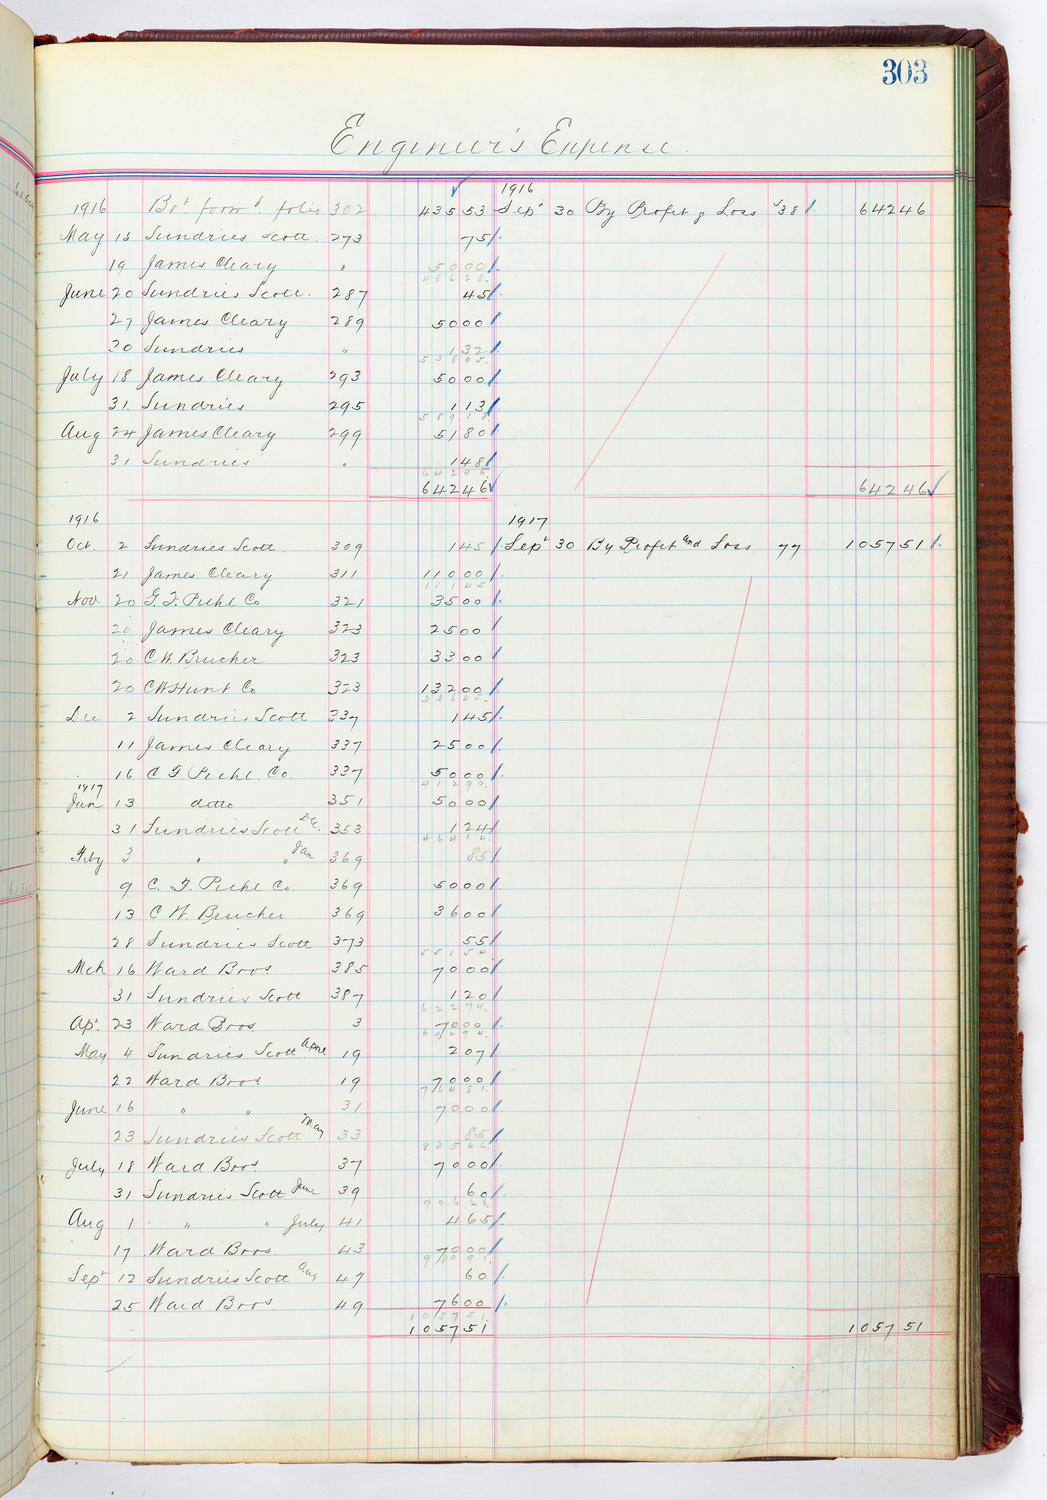 303
Engineer's Expense
1916
1916 Bt. forwd. folio 302 435 53 Sept 30 By Profit & Loss 38 642 46
May 13 Sundries Scott 273 75
19 James Cleary " 50 00
486 28
June 20 Sundries Scott. 287 45
27 James Cleary 289 50 00
30 Sundries " 1 32
538 05
July 18 James Cleary 293 50 00
31 Sundries 295 1 13
589 18
Aug 24 James Cleary 299 51 80
31 Sundries " 1 48
642 46
642 46 642 46
1916 1917
Oct. 2 Sundries Scott 309 1 45 Sept 30 By Profit and Loss 77 1057 51
21 James Cleary 311 110 00
111 45
Nov 20 G. F. Piehl Co 321 35 00
20 James Cleary 323 25 00
20 C W. Brucher 323 33 00
20 C W Hunt Co 323 132 00
336 45
Dec 2 Sundries Scott 337 1 45
11 James Cleary 337 25 00
16 C F. Piehl. Co. 337 50 00
412 90
1917
Jan 13 ditto 351 50 00
31 Sundries Scott Dec. 353 1 24
464 14
Feby 3 " " Jan 369 85
9 C. F. Piehl Co. 369 50 00
13 C W. Brucher 369 36 00
28 Sundries Scott 373 55
551 54
Mch 16 Ward Bros 385 70 00
31 Sundries Scott 387 1 20
622 74
Apr. 23 Ward Bros 3 70 00
692 74
May 4 Sundries Scott April 19 2 07
22 Ward Bros 19 70 00
764 81
June 16 " " 31 70 00
23 Sundries Scott May 33 85
835 66
July 18 Ward Bros 37 70 00
31 Sundries Scott June 39 60
906 26
Aug 1 " " July 41 4 65
17 Ward Bros. 43 70 00
980 91
Sept 12 Sundries Scott Aug 47 60
25 Ward Bros 49 76 00
1057 51
1057 51 1057 51